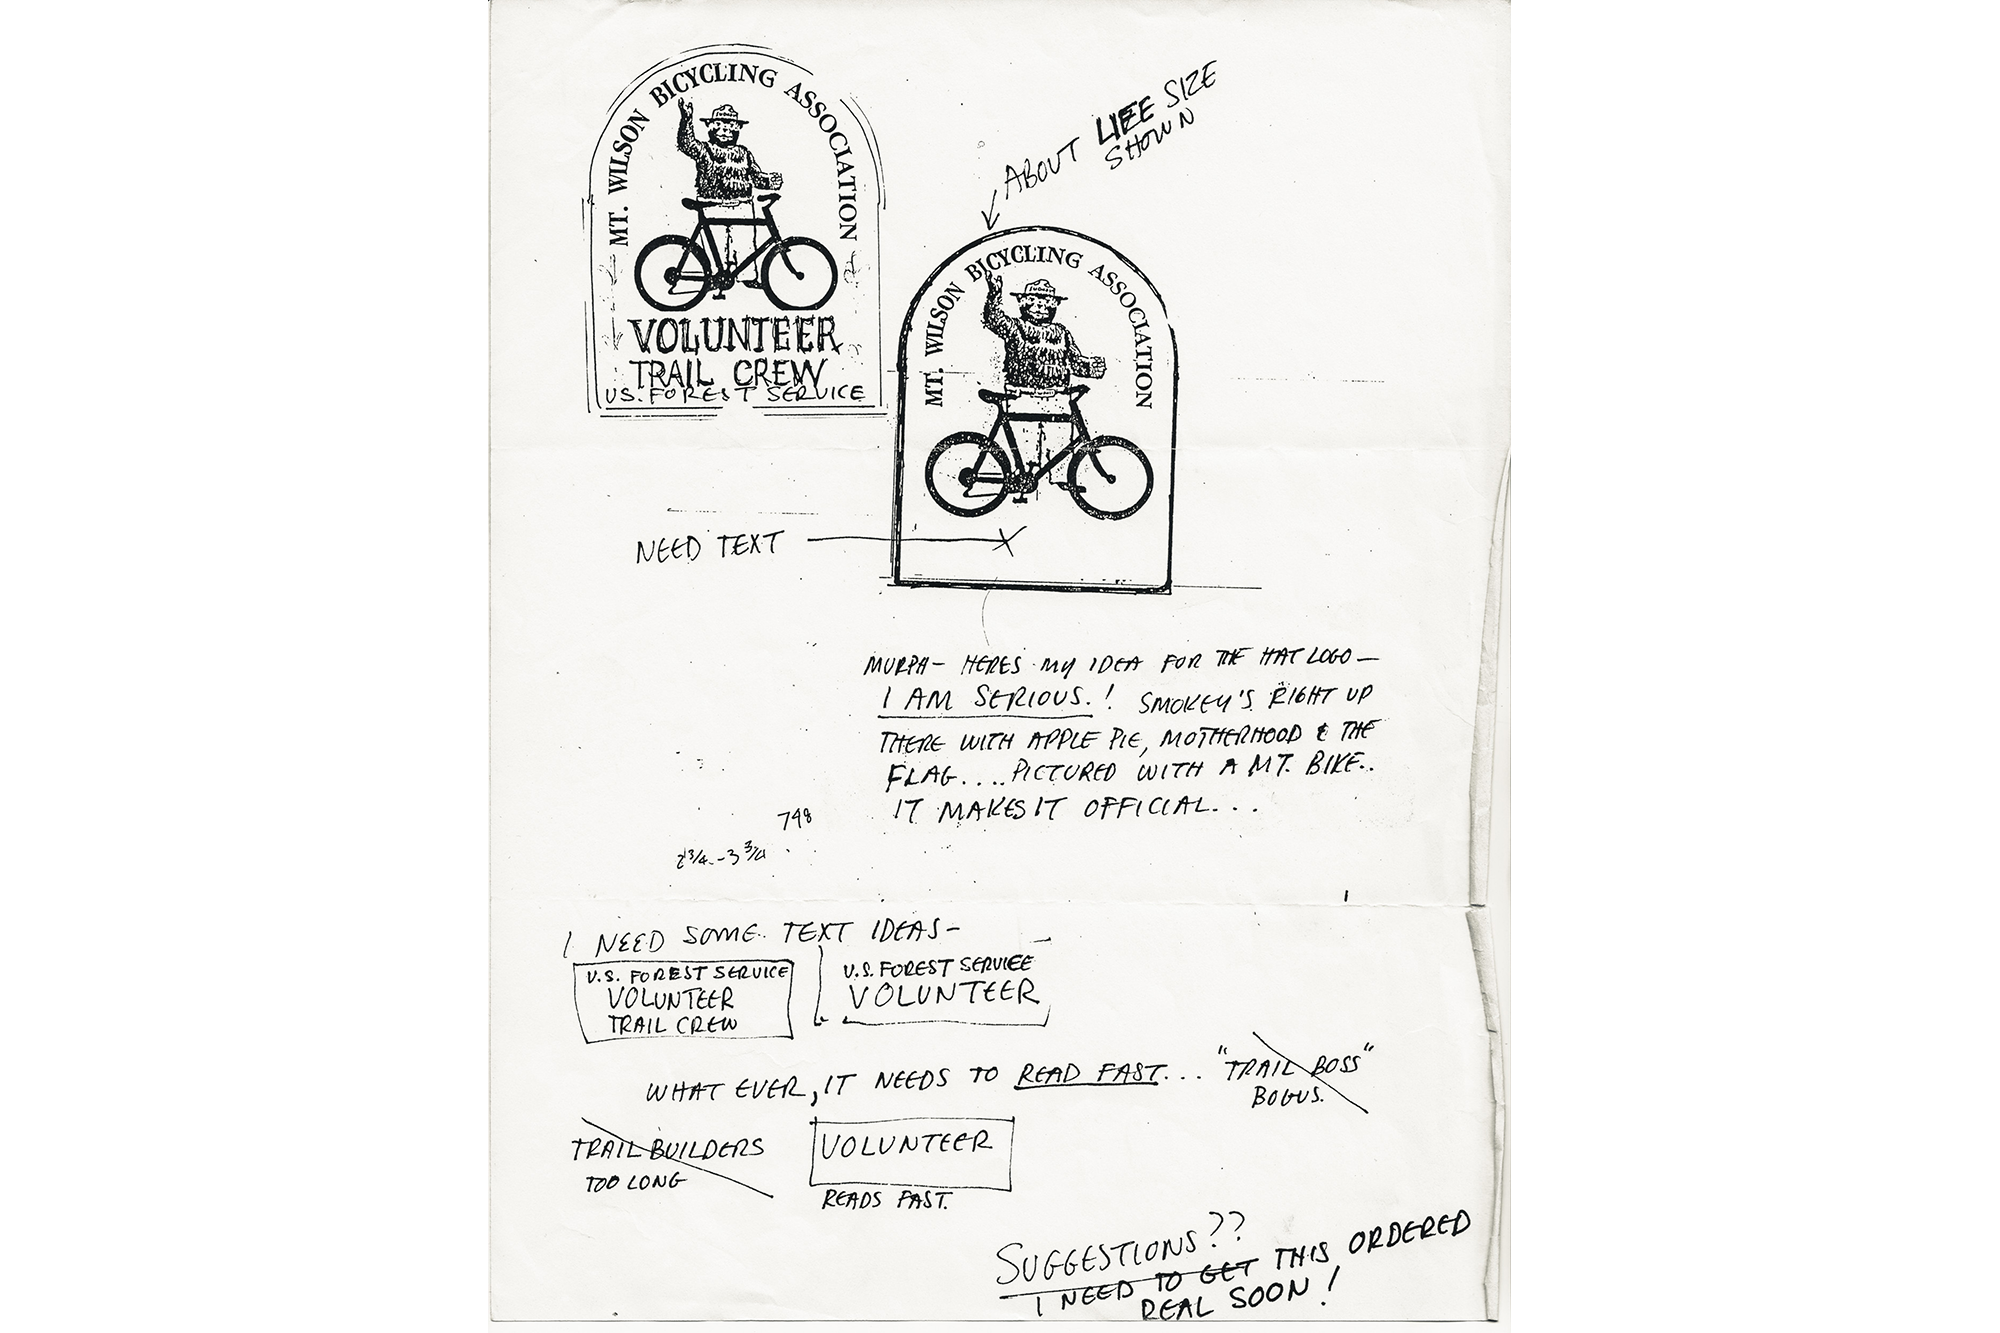 MT. WILSON BICYCLING ASSOCIATION
VOLUNTEER
TRAIL CREW
U.S. FOREST SERVICE
ABOUT LIFE SIZE
SHOWN
MT. WILSON BICYCLING ASSOCIATION
NEED TEXT
MURPH - HERES MY IDEA FOR THE HAT LOGO -
I AM SERIOUS.! SMOKEY'S RIGHT UP
THERE WITH APPLE PIE, MOTHERHOOD & THE
FLAG.... PICTURED WITH A MT. BIKE..
IT MAKES IT OFFICIAL...
748
2 3/4 - 3 3/4
I NEED SOME TEXT IDEAS -
U.S. FOREST SERVICE
VOLUNTEER
TRAIL CREW
U.S. FOREST SERVICE
VOLUNTEER
WHAT EVER, IT NEEDS TO READ FAST... "TRAIL BOSS"
BOGUS.
TRAIL BUILDERS
TOO LONG
VOLUNTEER
READS FAST.
SUGGESTIONS??
I NEED TO GET THIS ORDERED
REAL SOON!